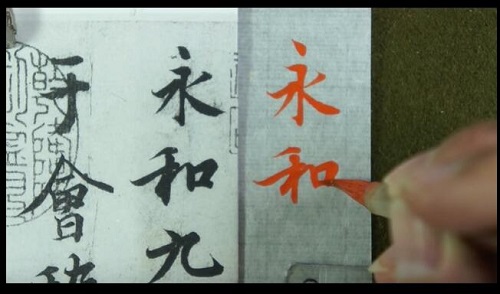 永和
永和九
于會